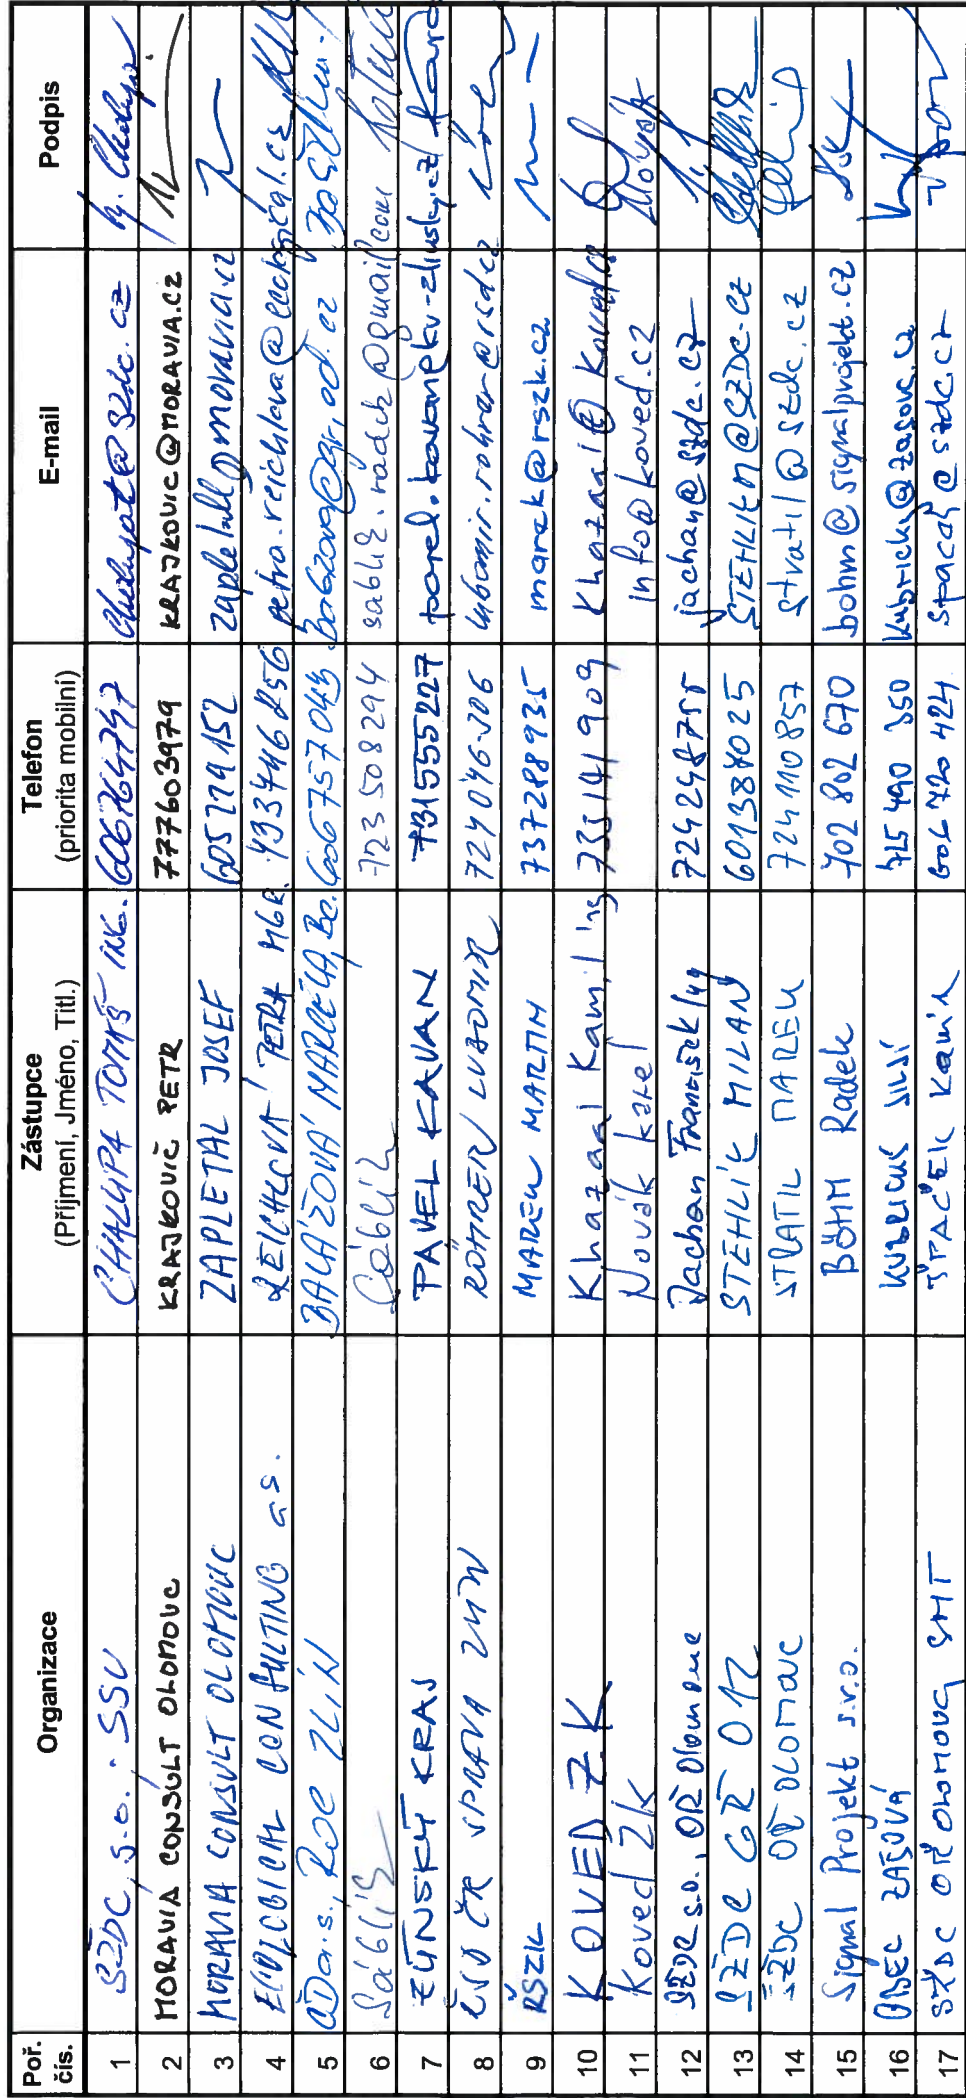 Poř. čís. Organizace Zástupce (Příjmení, Jméno, Titl.) Telefon (priorita mobilní) E-mail Podpis
1 SŽDC, s.o.; SSV CHALUPA TOMÁŠ ING. @szdc.cz
2 MORAVIA CONSULT OLOMOUC KRAJKOVIČ PETR 777603979 KRAJKOVIC@MORAVIA.CZ
3 MORAVIA CONSULT OLOMOUC ZAPLETAL JOSEF 605229152
4 ECOLOGICAL CONSULTING a.s. REICHLOVÁ PETRA MGR. 733746256
5 ČD a.s., ROC ZLÍN BALÁŽOVÁ MARCELA, Bc. 606757043
6 Sáblík 723 508294 sablik.radek@gmail.com
7 ZLÍNSKÝ KRAJ PAVEL KAVAN 731555227 pavel.kavan@kr-zlinsky.cz
8 ŘSD ČR SPRÁVA ZLÍN RÖHRER LUBOMÍR 724046306 lubomir.rohrer@rsd.cz
9 ŘSZK MAREK MARTIN 737288935 marek@rszk.cz
10 KOVED ZK Khazaal Kamil Ing 735141909
11 Koved ZK Novák Karel info@koved.cz
12 SŽDC s.o., OŘ Olomouc Jachan František Ing 724248755 jachan@szdc.cz
13 SŽDC GŘ O12 STEHLÍK MILAN 601384025 STEHLIKM@SZDC.CZ
14 SŽDC OŘ OLOMOUC STRATIL MAREK 724110857 stratil@szdc.cz
15 Signal Projekt s.r.o. BÖHM Radek 702 802 670 bohm@signalprojekt.cz
16 OBEC ZAŠOVÁ 725 490 350
17 SŽDC OŘ OLOMOUC SMT ŠPAČEK Kamil 606 720 424 spacek@szdc.cz